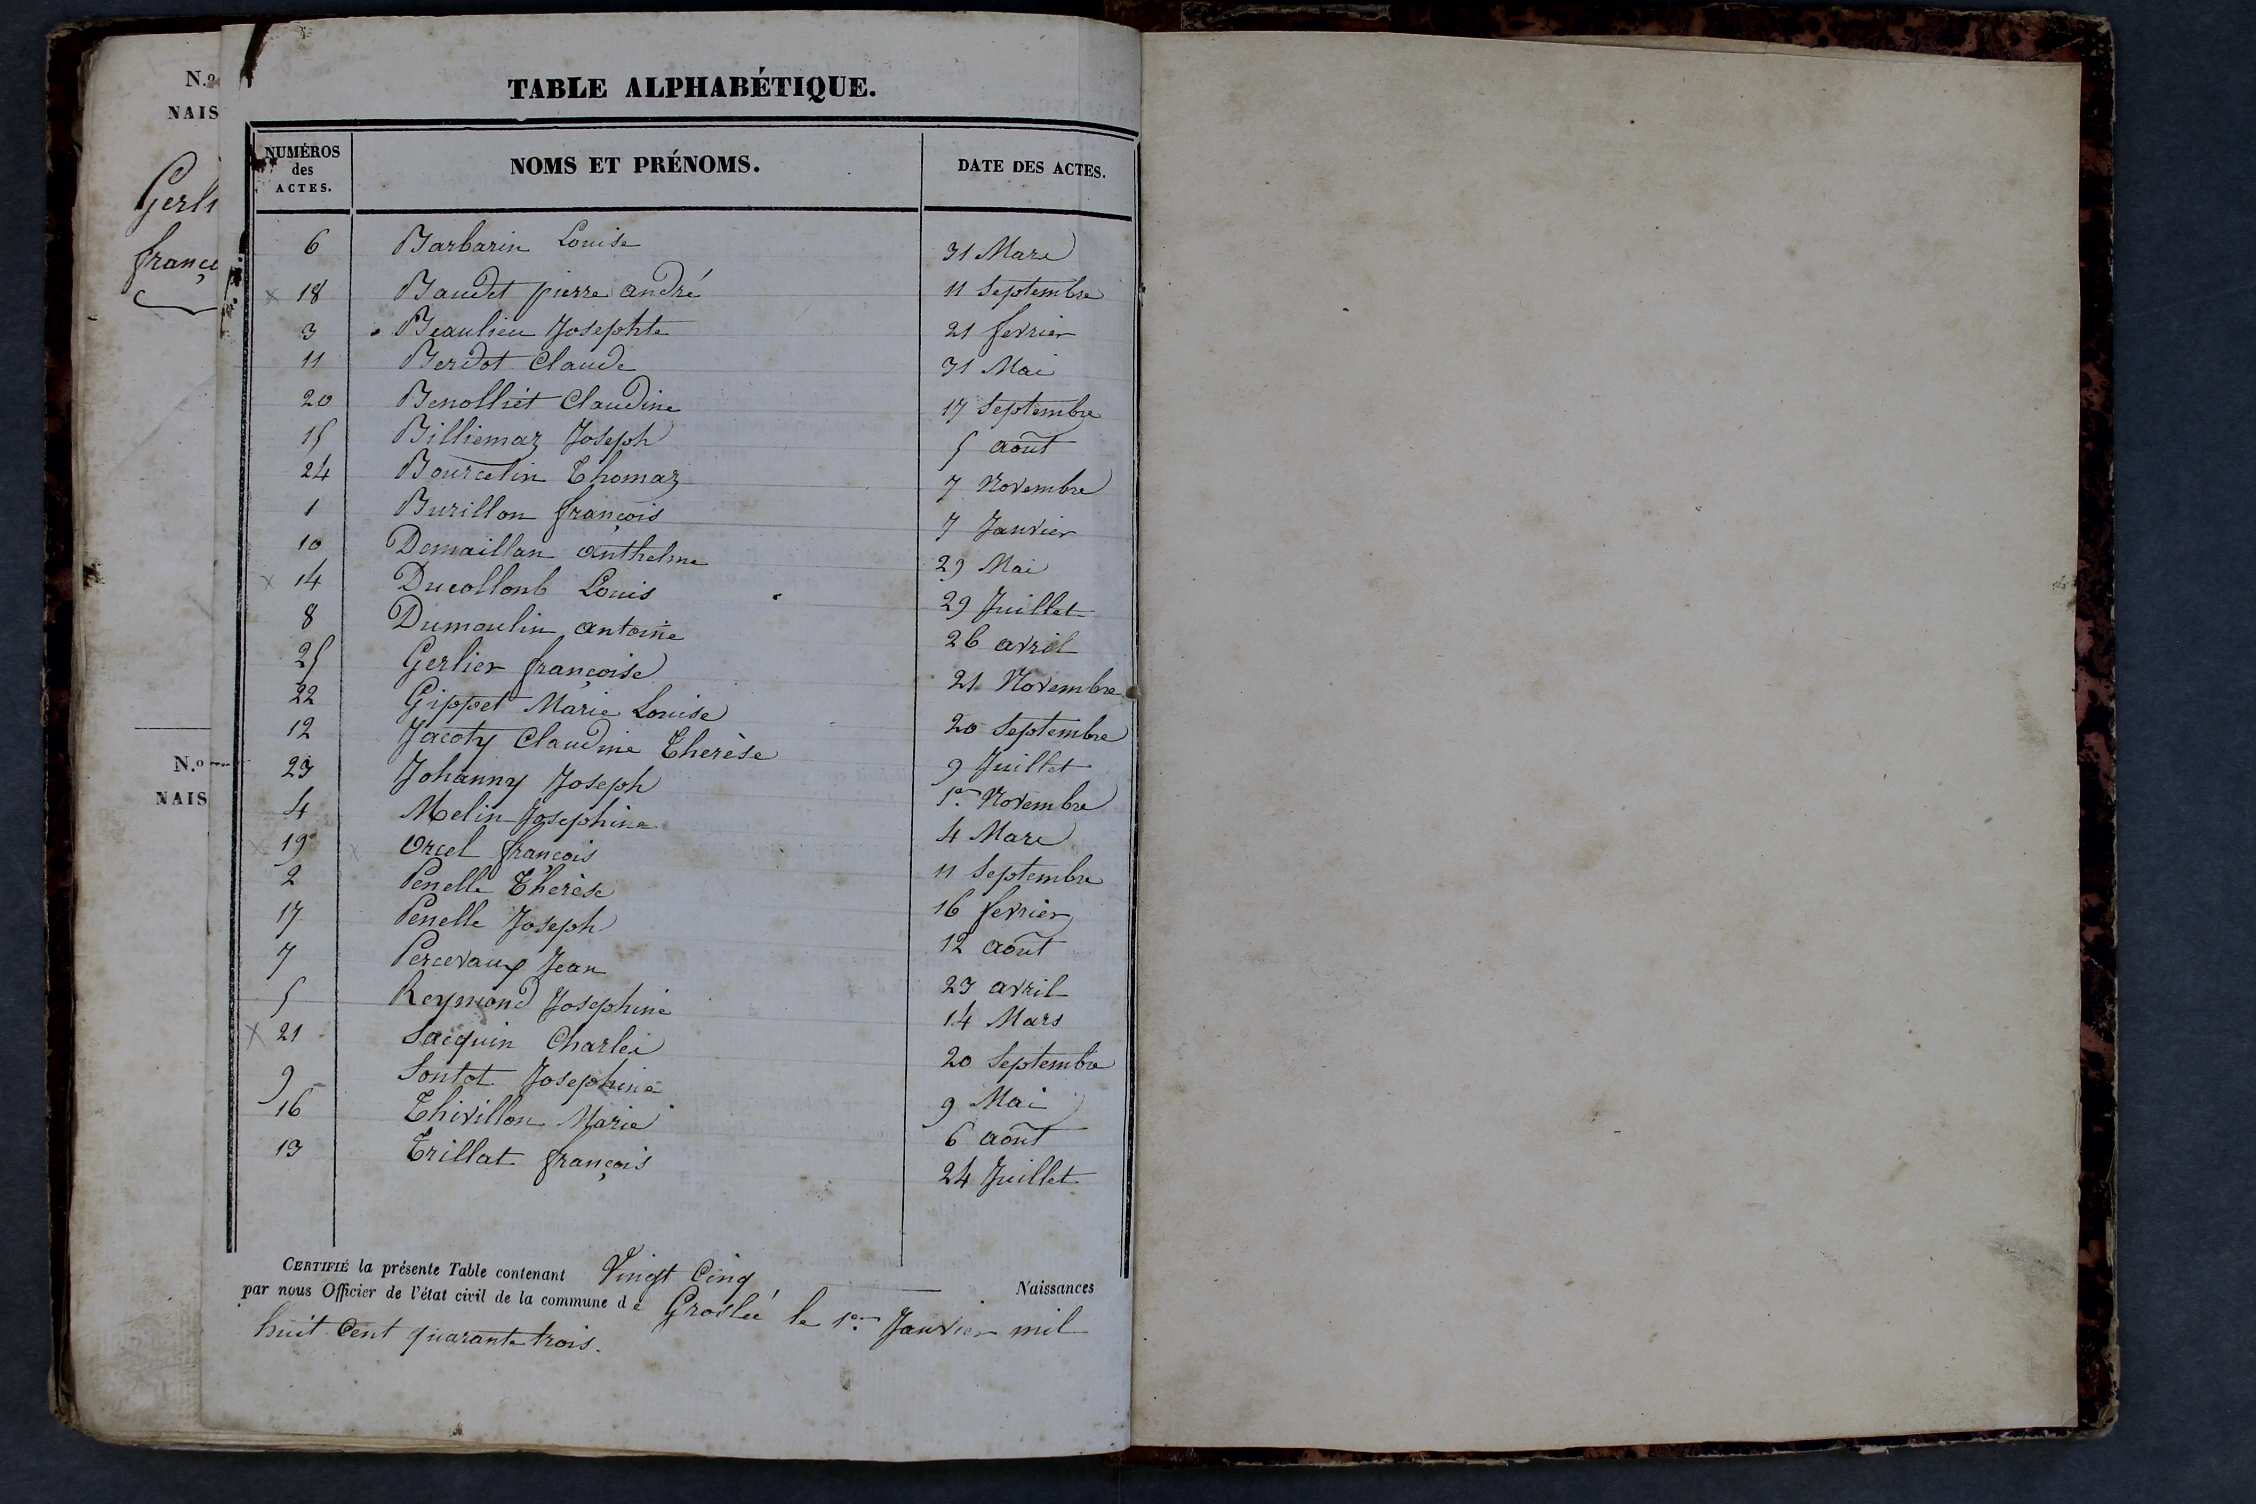 N.o
NAIS
Gerli
franç
N.o
NAIS
TABLE ALPHABÉTIQUE.
NUMÉROS des ACTES. NOMS ET PRÉNOMS. DATE DES ACTES.
6 Barbarin Louise 31 Mars
x 18 Baudet pierre andré 11 Septembre
3 Beaulieu Josephte 21 fevrier
11 Berdot Claude 31 Mai
20 Benolliet Claudine 17 Septembre
15 Billiemaz Joseph 5 août
24 Bourcelin Thomaz 7 Novembre
1 Burillon françois 7 Janvier
10 Demaillan anthelme 29 Mai
x 14 Ducollonb Louis 29 Juillet
8 Dumoulin antoine 26 avril
25 Gerlier françoise 21 Novembre
22 Gippet Marie Louise 20 Septembre
12 Jacoty Claudine Therèse 9 Juillet
23 Johanny Joseph 1er Novembre
4 Melin Josephine 4 Mars
x 19 x Orcel françois 11 Septembre
2 Penelle Therèse 16 fevrier
17 Penelle Joseph 12 août
7 Percevaux Jean 23 avril
5 Reymond Josephine 14 Mars
x 21 Sacquin Charles 20 Septembre
9 Sontot Josephine 9 Mai
16 Thivillon Marie 6 août
13 Trillat françois 24 Juillet
CERTIFIÉ la présente Table contenant Vingt Cinq Naissances
par nous Officier de l'état civil de la commune de Groslée le 1er Janvier mil
huit Cent quarante trois.